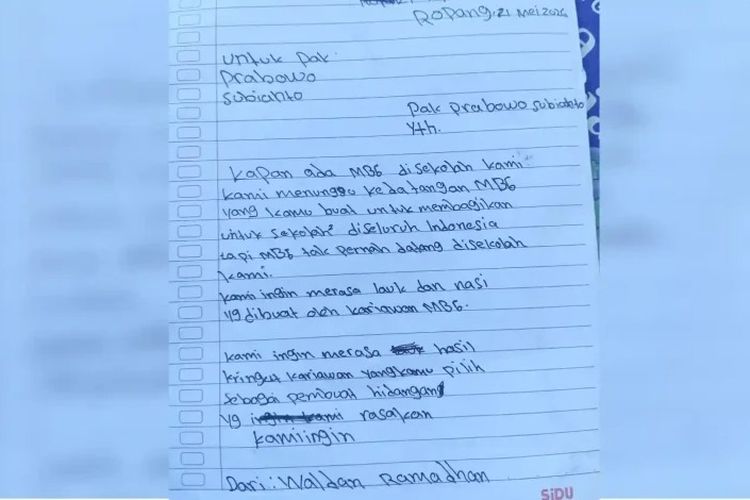 Ropang, 21 Mei 2026
untuk pak
prabowo
subianto
pak prabowo subianto
Yth.
kapan ada MBG disekolah kami
kami menunggu kedatangan MBG
yang kamu buat untuk membagikan
untuk sekolah² diseluruh Indonesia
tapi MBG tak pernah datang disekolah
kami.
kami ingin merasa lauk dan nasi
yg dibuat oleh kariawan MBG.
kami ingin merasa hasil
kringat kariawan yang kamu pilih
sebagai pembuat hidangan
yg rasakan
kami ingin
Dari : Waldan Ramadhan
SiDU